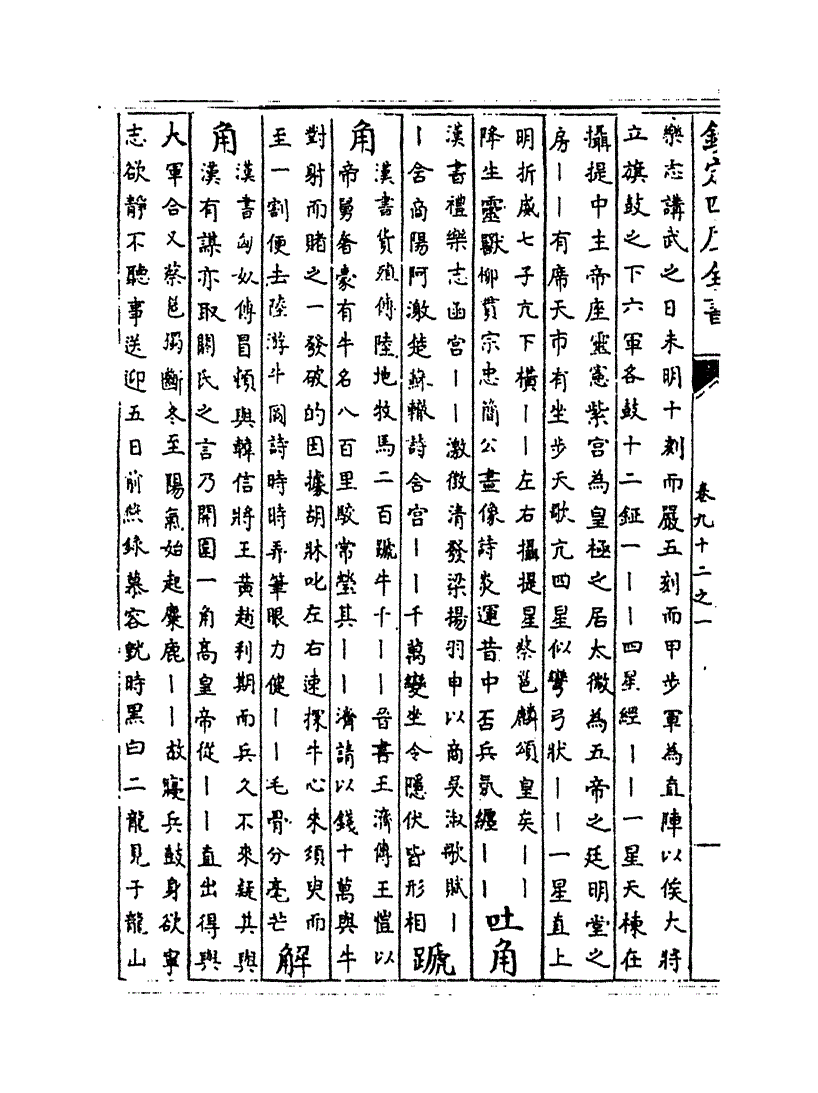 欽定四庫全書
卷九十二之一
樂志講武之日未明十刻而嚴五刻而甲步軍為直陣以俟大將
立旗鼓之下六軍各鼓十二鉦一丨丨四星經丨丨一星天棟在
攝提中主帝座靈憲紫宮為皇極之居太微為五帝之廷明堂之
房丨丨有席天市有坐步天歌亢四星似彎弓狀丨丨一星直上
明折威七子亢下橫丨丨左右攝提星蔡邕麟頌皇矣丨丨
降生靈獸柳貫宗忠簡公畫像詩炎運昔中否兵氣纏丨丨
吐角
漢書禮樂志函宮丨丨激徵清發梁揚羽申以商吳淑歌賦丨
丨含商陽阿激楚蘇轍詩含宮丨丨千萬變坐令隱伏皆形相
蹏
角
漢書貨殖傳陸地牧馬二百蹏牛千丨丨晉書王濟傳王愷以
帝舅奢豪有牛名八百里駮常瑩其丨丨濟請以錢十萬與牛
對射而賭之一發破的因據胡牀叱左右速探牛心來須臾而
至一割便去陸游牛圖詩時時弄筆眼力健丨丨毛骨分毫芒
解
角
漢書匈奴傳冒頓與韓信將王黃趙利期而兵久不來疑其與
漢有謀亦取閼氏之言乃開圍一角高皇帝從丨丨直出得與
大軍合又蔡邕獨斷冬至陽氣始起麋鹿丨丨故寢兵鼓身欲寧
志欲靜不聽事送迎五日前燕錄慕容皝時黑白二龍見于龍山